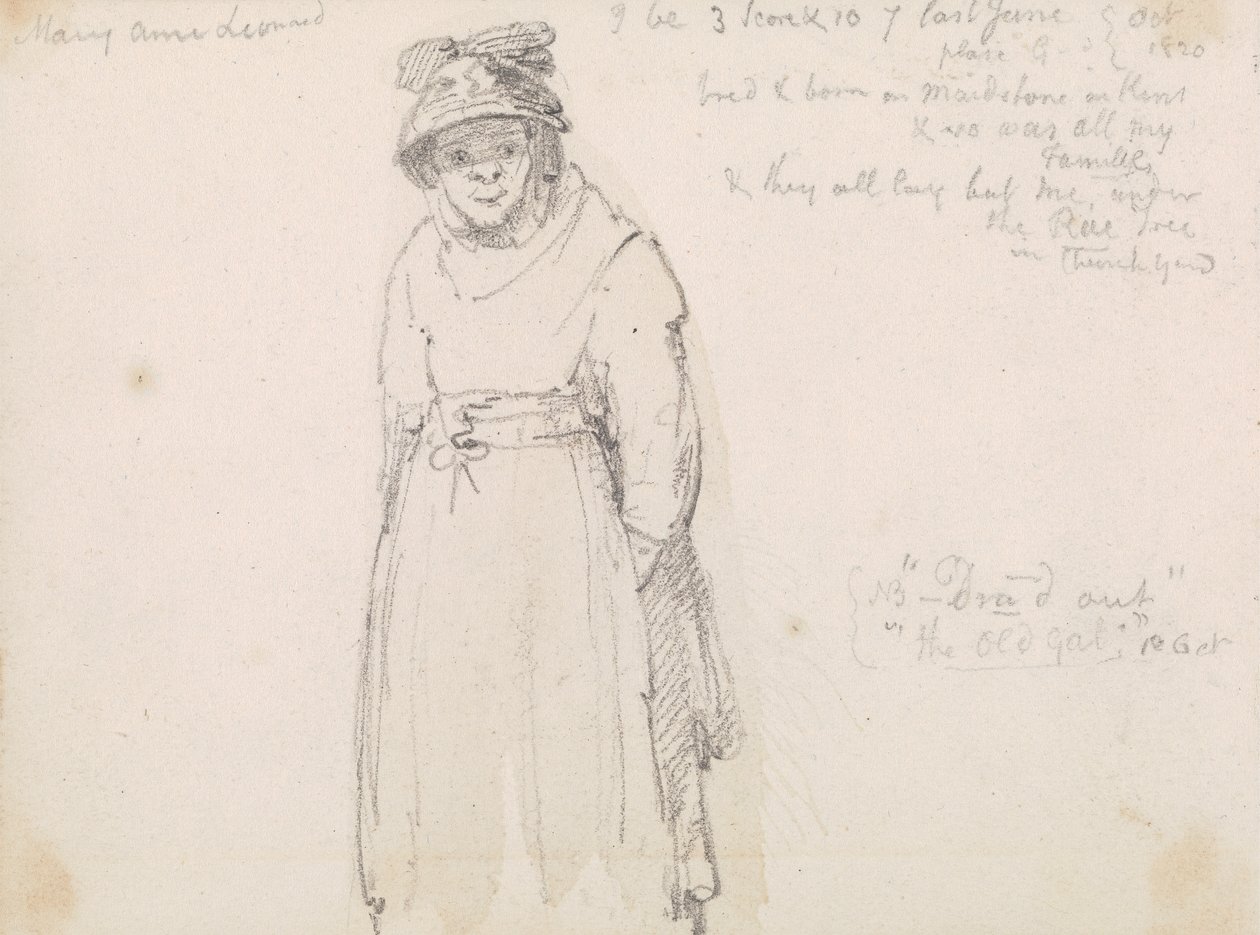 Mary Ann Leonard
I be 3 Score & 10 7 last June { Oct
plase G { 1820
bred & born in Maidstone in Kent
& so was all my
Familly
& they all lay but me, under
the Rue Tree
in Church Yard
NB "Dra'd out"
"the Old gal:" Oct